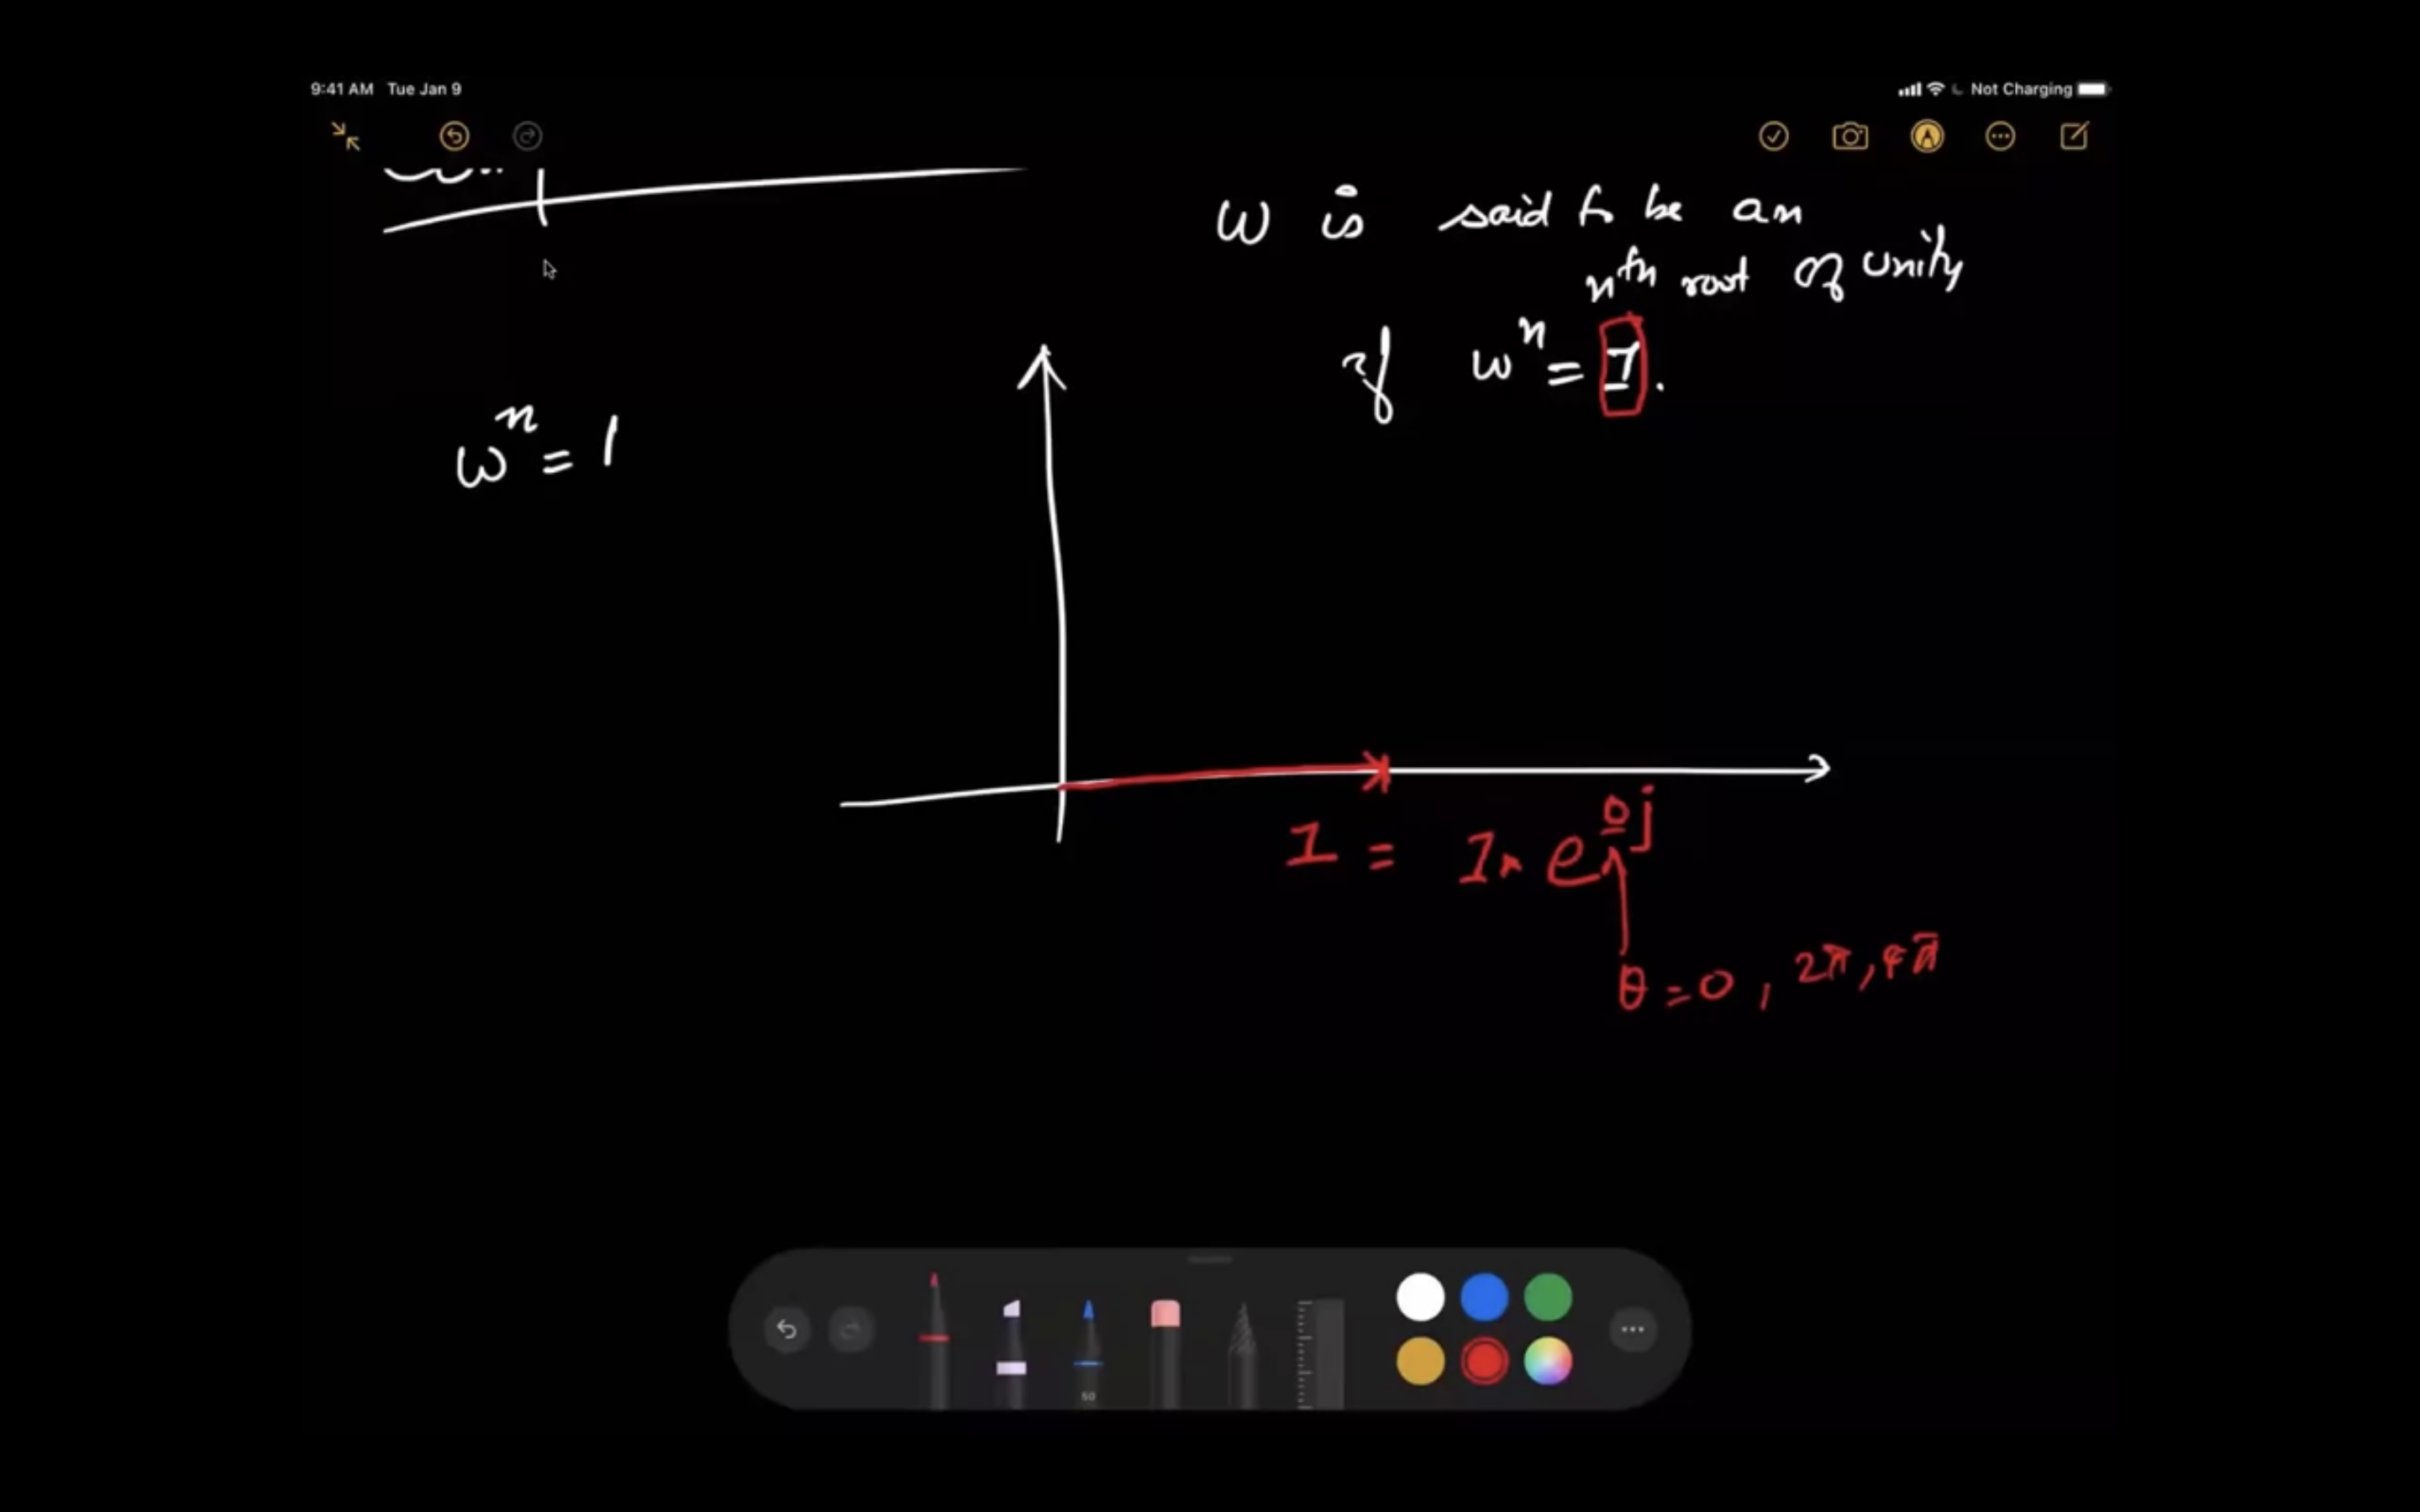 9:41 AM Tue Jan 9
Not Charging
ω is said to be an
nth root of unity
if ωⁿ = 1.
ωⁿ = 1
1 = 1 × e^{0j}
θ = 0, 2π, 4π
50